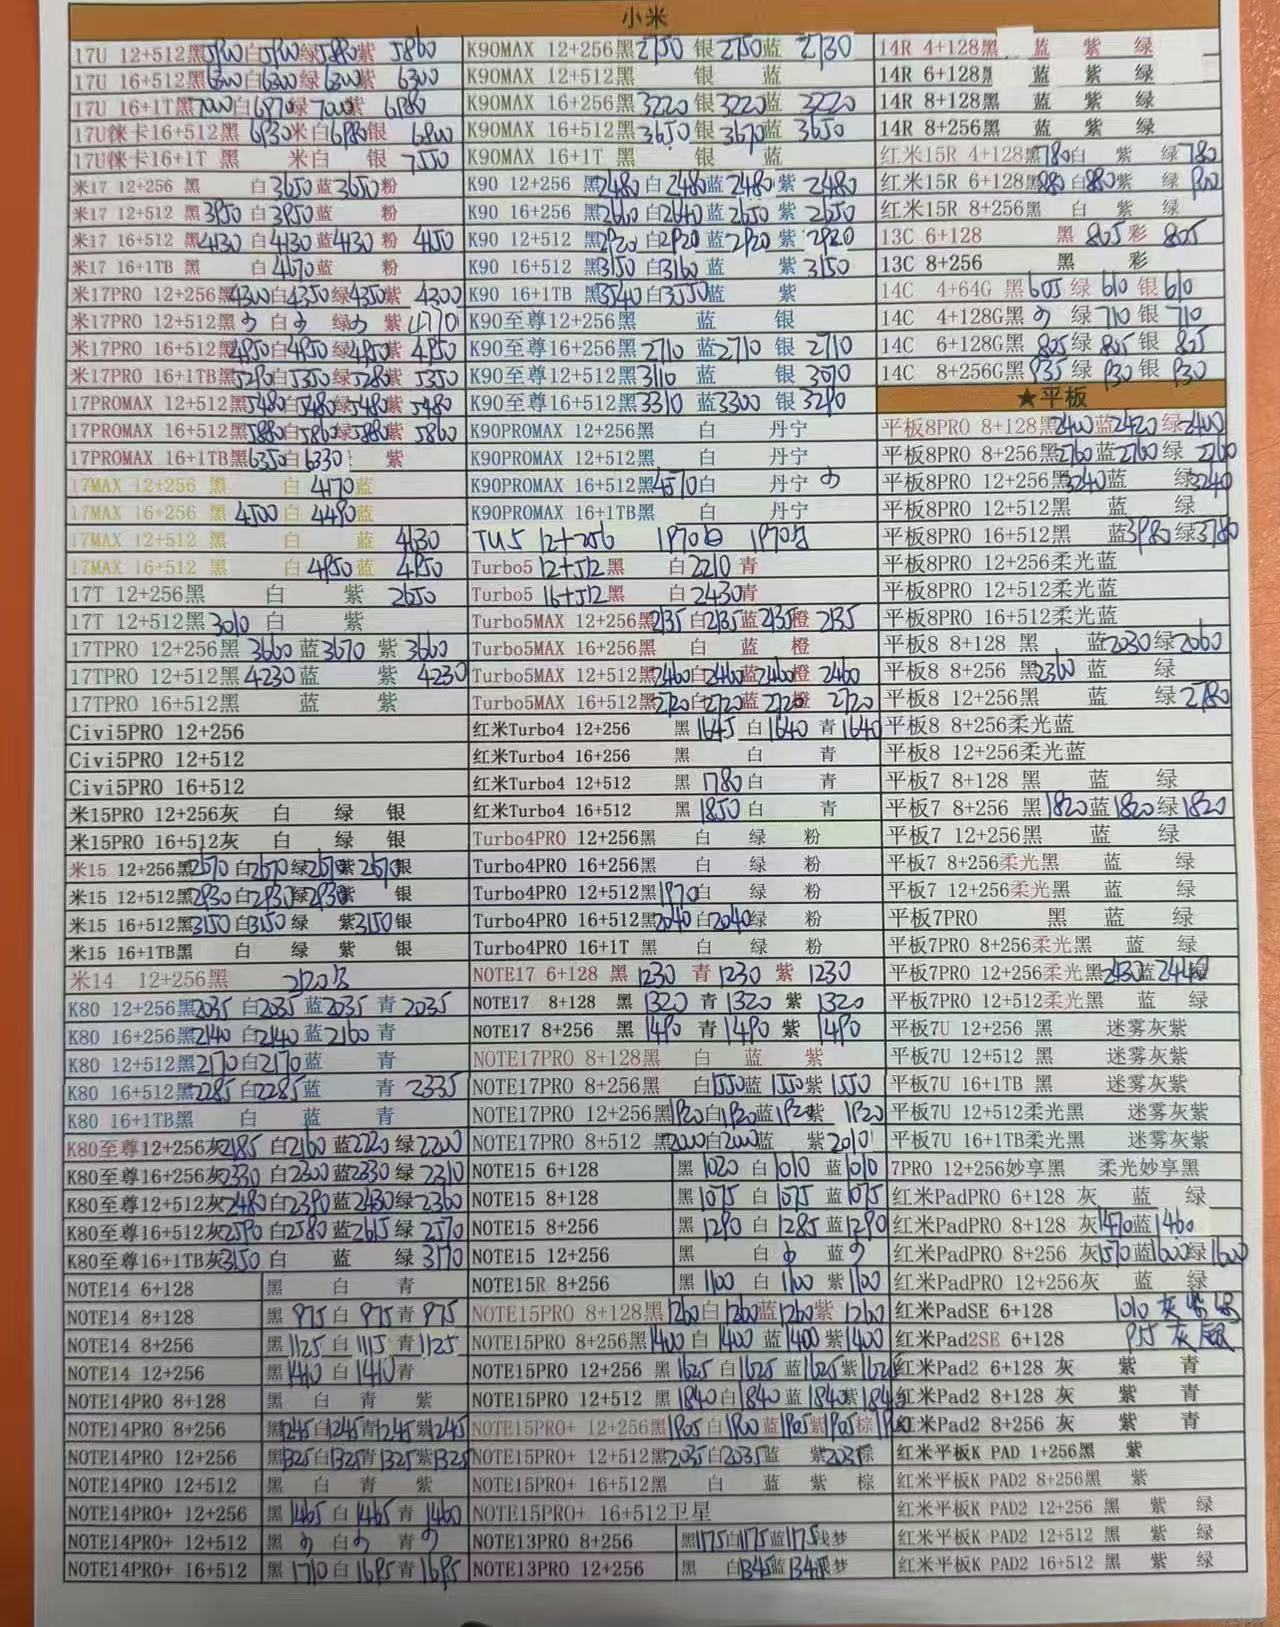 小米
17U 12+512黑5900白5900绿5880紫 5860
17U 16+512黑6300白6300绿6300紫 6300
17U 16+1T黑7000白6970绿7000紫 6980
17U徕卡16+512黑 6930米白6980银 6800
17U徕卡16+1T 黑 米白 银 7550
米17 12+256 黑 白3650蓝3650粉
米17 12+512 黑3950白3950蓝 粉
米17 16+512 黑4130白4130蓝4130 粉 4150
米17 16+1TB 黑 白4670蓝 粉
米17PRO 12+256黑4300白4350绿4350紫 4300
米17PRO 12+512黑 白 绿 紫 4770
米17PRO 16+512黑4950白4950绿4950紫 4950
米17PRO 16+1TB黑5290白5350绿5280紫 5350
17PROMAX 12+512黑5480白5480绿5480紫 5480
17PROMAX 16+512黑5880白5860绿5880紫 5860
17PROMAX 16+1TB黑6350白6330 紫
17MAX 12+256 黑 白 4170蓝
17MAX 16+256 黑 4500 白 4490蓝
17MAX 12+512 黑 白 蓝 4630
17MAX 16+512 黑 白 4950蓝 4950
17T 12+256黑 白 紫 2650
17T 12+512黑3010 白 紫
17TPRO 12+256黑 3660 蓝3670 紫 3660
17TPRO 12+512黑4230蓝 紫 4230
17TPRO 16+512黑 蓝 紫
Civi5PRO 12+256
Civi5PRO 12+512
Civi5PRO 16+512
米15PRO 12+256灰 白 绿 银
米15PRO 16+512灰 白 绿 银
米15 12+256黑2670白2670绿2670紫2670银
米15 12+512黑2930白2930绿2930紫 银
米15 16+512黑3150白3150绿 紫3150银
米15 16+1TB黑 白 绿 紫 银
米14 12+256黑 2120
K80 12+256黑2035 白2035 蓝2035 青 2035
K80 16+256黑2140 白2140 蓝2160 青
K80 12+512黑2170白2170蓝 青
K80 16+512黑2285白2285蓝 青 2335
K80 16+1TB黑 白 蓝 青
K80至尊12+256灰2185 白2160 蓝2220 绿2200
K80至尊16+256灰2330 白2300蓝2330 绿 2310
K80至尊12+512灰2480白2390蓝2430绿 2360
K80至尊16+512灰2590白2580蓝2615绿 2570
K80至尊16+1TB灰3150 白 蓝 绿 3170
NOTE14 6+128 黑 白 青
NOTE14 8+128 黑 975白 975青 975
NOTE14 8+256 黑1125白1115青1125
NOTE14 12+256 黑1410白1410青
NOTE14PRO 8+128 黑 白 青 紫
NOTE14PRO 8+256 黑1245白1245青1245紫1245
NOTE14PRO 12+256 黑1325白1325青1325紫1325
NOTE14PRO 12+512 黑 白 青 紫
NOTE14PRO+ 12+256 黑1465白1465青 1460
NOTE14PRO+ 12+512 黑 白 青
NOTE14PRO+ 16+512 黑 1710白1695青1695
K90MAX 12+256黑2750 银2750蓝 2730
K90MAX 12+512黑 银 蓝
K90MAX 16+256黑3220 银3220蓝 3220
K90MAX 16+512黑3650 银3670蓝 3650
K90MAX 16+1T 黑 银 蓝
K90 12+256 黑2480白2480蓝2480紫 2480
K90 16+256 黑2660白2640蓝2650紫 2650
K90 12+512 黑2920白2920蓝2920紫 2920
K90 16+512 黑3150白3160蓝 紫3150
K90 16+1TB 黑3540白3550蓝 紫
K90至尊12+256黑 蓝 银
K90至尊16+256黑2710 蓝2710 银 2710
K90至尊12+512黑3110 蓝 银 3090
K90至尊16+512黑3310 蓝3300 银3290
K90PROMAX 12+256黑 白 丹宁
K90PROMAX 12+512黑 白 丹宁
K90PROMAX 16+512黑4570白 丹宁
K90PROMAX 16+1TB黑 白 丹宁
TU5 12+256 1970白 1970
Turbo5 12+512黑 白2210青
Turbo5 16+512黑 白2430青
Turbo5MAX 12+256黑2135白2135蓝2135橙 2135
Turbo5MAX 16+256黑 白 蓝 橙
Turbo5MAX 12+512黑2460白2460蓝2460橙 2460
Turbo5MAX 16+512黑2720白2720蓝2720橙 2720
红米Turbo4 12+256 黑 1645白1640 青1640
红米Turbo4 16+256 黑 白 青
红米Turbo4 12+512 黑 1780白 青
红米Turbo4 16+512 黑 1850白 青
Turbo4PRO 12+256黑 白 绿 粉
Turbo4PRO 16+256黑 白 绿 粉
Turbo4PRO 12+512黑1970白 绿 粉
Turbo4PRO 16+512黑2040白2040绿 粉
Turbo4PRO 16+1T 黑 白 绿 粉
NOTE17 6+128 黑 1230 青1230 紫 1230
NOTE17 8+128 黑 1320 青 1320 紫 1320
NOTE17 8+256 黑 1490 青 1490 紫 1490
NOTE17PRO 8+128黑 白 蓝 紫
NOTE17PRO 8+256黑 白1550蓝1550紫1550
NOTE17PRO 12+256黑1920白1920蓝1920紫 1920
NOTE17PRO 8+512 黑2000白2000蓝 紫2010
NOTE15 6+128 黑 1020 白 1010 蓝1010
NOTE15 8+128 黑1075 白 1075 蓝1075
NOTE15 8+256 黑1290 白 1285 蓝1290
NOTE15 12+256 黑 白 蓝
NOTE15R 8+256 黑1100 白1100 紫1100
NOTE15PRO 8+128黑1260白1260蓝1260紫 1260
NOTE15PRO 8+256黑1400 白 1400 蓝1400紫1400
NOTE15PRO 12+256 黑 1625 白1625 蓝1625紫
NOTE15PRO 12+512 黑 1840白1840 蓝1840紫
NOTE15PRO+ 12+256黑1905白1900蓝1905紫1905棕
NOTE15PRO+ 12+512黑2035白2035蓝 紫2035棕
NOTE15PRO+ 16+512黑 白 蓝 紫 棕
NOTE15PRO+ 16+512卫星
NOTE13PRO 8+256 黑1175白1175蓝1175浅梦
NOTE13PRO 12+256 黑 白1345蓝1345浅梦
14R 4+128黑 蓝 紫 绿
14R 6+128黑 蓝 紫 绿
14R 8+128黑 蓝 紫 绿
14R 8+256黑 蓝 紫 绿
红米15R 4+128黑780白 紫 绿780
红米15R 6+128黑880白880紫 绿 900
红米15R 8+256黑 白 紫 绿
13C 6+128 黑 805 彩 805
13C 8+256 黑 彩
14C 4+64G 黑605 绿 610 银610
14C 4+128G黑 绿 710 银 710
14C 6+128G黑 805 绿 805 银 805
14C 8+256G黑935 绿 930 银 930
★平板
平板8PRO 8+128黑2400蓝2420 绿2400
平板8PRO 8+256黑2760蓝2760绿 2760
平板8PRO 12+256黑3240蓝 绿3240
平板8PRO 12+512黑 蓝 绿
平板8PRO 16+512黑 蓝3980绿3780
平板8PRO 12+256柔光蓝
平板8PRO 12+512柔光蓝
平板8PRO 16+512柔光蓝
平板8 8+128 黑 蓝2030绿2060
平板8 8+256 黑2360蓝 绿
平板8 12+256黑 蓝 绿2780
平板8 8+256柔光蓝
平板8 12+256柔光蓝
平板7 8+128 黑 蓝 绿
平板7 8+256 黑1820蓝1820绿1820
平板7 12+256黑 蓝 绿
平板7 8+256柔光黑 蓝 绿
平板7 12+256柔光黑 蓝 绿
平板7PRO 黑 蓝 绿
平板7PRO 8+256柔光黑 蓝 绿
平板7PRO 12+256柔光黑2430蓝2440绿
平板7PRO 12+512柔光黑 蓝 绿
平板7U 12+256 黑 迷雾灰紫
平板7U 12+512 黑 迷雾灰紫
平板7U 16+1TB 黑 迷雾灰紫
平板7U 12+512柔光黑 迷雾灰紫
平板7U 16+1TB柔光黑 迷雾灰紫
7PRO 12+256妙享黑 柔光妙享黑
红米PadPRO 6+128 灰 蓝 绿
红米PadPRO 8+128 灰1470蓝1460
红米PadPRO 8+256 灰1570蓝1600绿1600
红米PadPRO 12+256灰 蓝 绿
红米PadSE 6+128 1010 灰 紫 绿
红米Pad2SE 6+128 955 灰 银
红米Pad2 6+128 灰 紫 青
红米Pad2 8+128 灰 紫 青
红米Pad2 8+256 灰 紫 青
红米平板K PAD 1+256黑 紫
红米平板K PAD2 8+256黑 紫
红米平板K PAD2 12+256 黑 紫 绿
红米平板K PAD2 12+512 黑 紫 绿
红米平板K PAD2 16+512 黑 紫 绿